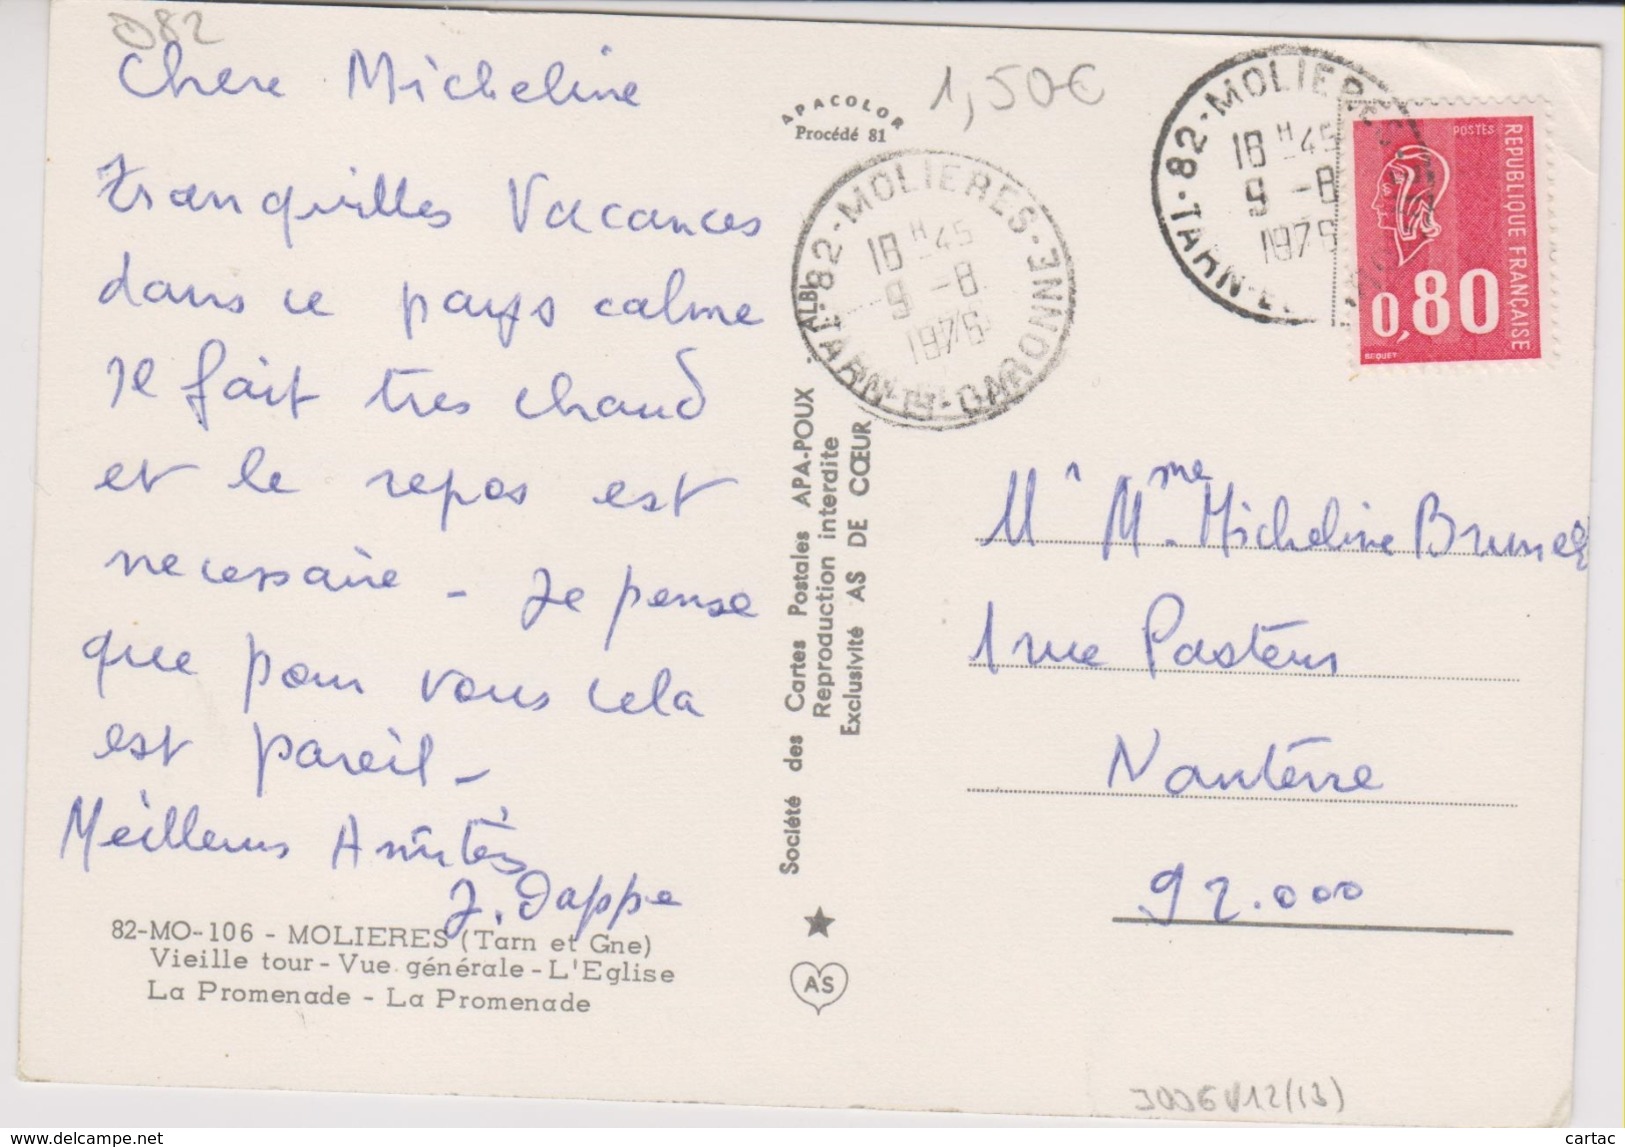 D82
Chere Micheline
tranquilles Vacances
dans ce pays calme
Il fait tres chaud
et le repos est
necessaire - Je pense
que pour vous cela
est pareil -
Meilleures Amitiés
J. Dappe
82-MO-106 - MOLIERES (Tarn et Gne)
Vieille tour - Vue générale - L'Eglise
La Promenade - La Promenade
APACOLOR
Procédé 81
Société des Cartes Postales APA-POUX - ALBI
Reproduction interdite
Exclusivité AS DE CŒUR
AS
1,50€
82-MOLIERES
TARN-ET-GARONNE
18 H 45
9 -8
1976
82-MOLIERES
TARN-E
18 H 45
9 -8
1976
POSTES
REPUBLIQUE FRANÇAISE
0,80
BEQUET
Mr Mme Micheline
1 rue Pasteur
Nanterre
92.000
cartac
https://www.delcampe.net